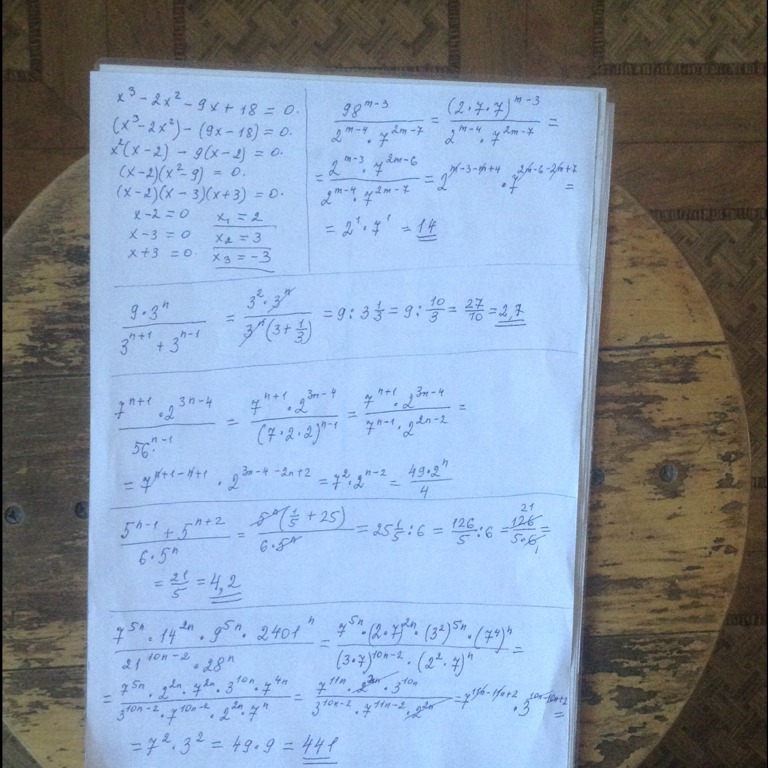 x³ - 2x² - 9x + 18 = 0.
(x³ - 2x²) - (9x - 18) = 0.
x²(x - 2) - 9(x - 2) = 0.
(x - 2)(x² - 9) = 0.
(x - 2)(x - 3)(x + 3) = 0.
x - 2 = 0 x₁ = 2
x - 3 = 0 x₂ = 3
x + 3 = 0. x₃ = -3
98^(m-3) / (2^(m-4) · 7^(2m-7)) = (2·7·7)^(m-3) / (2^(m-4) · 7^(2m-7)) =
= (2^(m-3) · 7^(2m-6)) / (2^(m-4) · 7^(2m-7)) = 2^(m-3-m+4) · 7^(2m-6-2m+7) =
= 2¹ · 7¹ = 14
(9 · 3ⁿ) / (3^(n+1) + 3^(n-1)) = (3² · 3ⁿ) / (3ⁿ(3 + 1/3)) = 9 : 3 1/3 = 9 : 10/3 = 27/10 = 2,7
(7^(n+1) · 2^(3n-4)) / 56^(n-1) = (7^(n+1) · 2^(3n-4)) / (7·2·2)^(n-1) = (7^(n+1) · 2^(3n-4)) / (7^(n-1) · 2^(2n-2)) =
= 7^(n+1-n+1) · 2^(3n-4-2n+2) = 7² · 2^(n-2) = (49 · 2ⁿ) / 4
(5^(n-1) + 5^(n+2)) / (6 · 5ⁿ) = (5ⁿ(1/5 + 25)) / (6 · 5ⁿ) = 25 1/5 : 6 = 126/5 : 6 = 126 21 / (5 · 6 1) =
= 21/5 = 4,2
(7^(5n) · 14^(2n) · 9^(5n) · 2401ⁿ) / (21^(10n-2) · 28ⁿ) = (7^(5n) · (2·7)^(2n) · (3²)^(5n) · (7⁴)ⁿ) / ((3·7)^(10n-2) · (2²·7)ⁿ) =
= (7^(5n) · 2^(2n) · 7^(2n) · 3^(10n) · 7^(4n)) / (3^(10n-2) · 7^(10n-2) · 2^(2n) · 7ⁿ) = (7^(11n) · 2^(2n) · 3^(10n)) / (3^(10n-2) · 7^(11n-2) · 2^(2n)) = 7^(11n-11n+2) · 3^(10n-10n+2) =
= 7² · 3² = 49 · 9 = 441